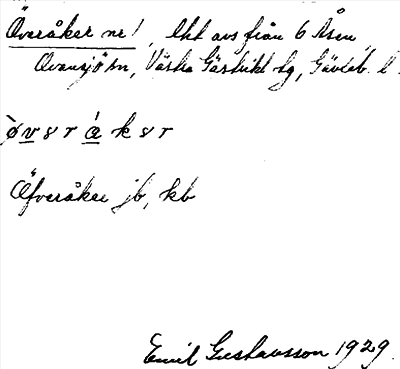 Överåker nr 1, lht avs från 6 Åsen,
Ovansjö sn, Västra Gästrikl tg, Gävleb. l.
òv𝑠r á k𝑠r
Öfveråker jb, kb
Emil Gustavsson 1929.